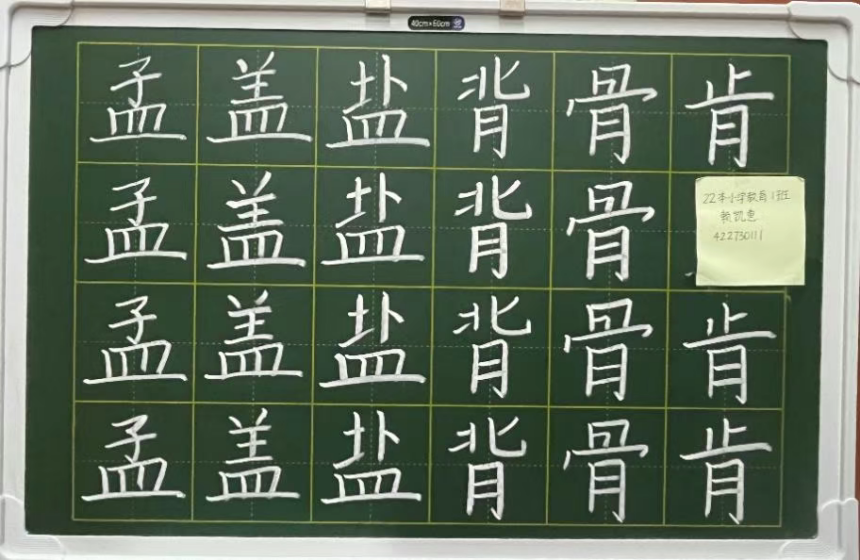 40cm×60cm
孟盖盐背骨肯
孟盖盐背骨
22本小学教育1班
422730111
孟盖盐背骨肯
孟盖盐背骨肯